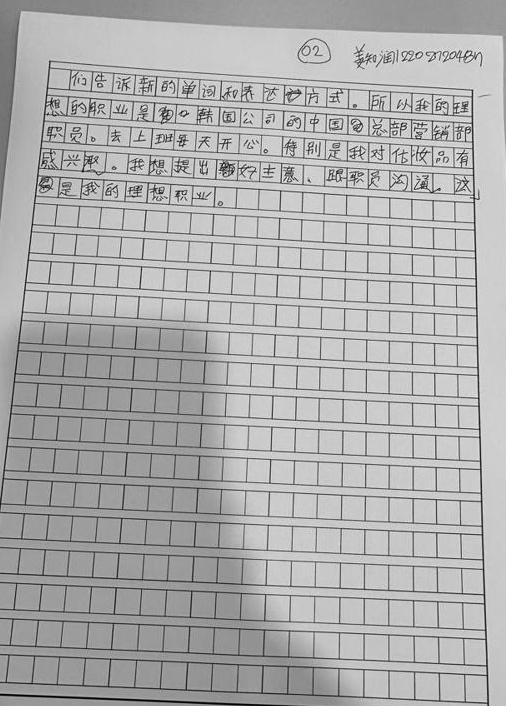 02 姜知润
们告诉新的单词和表达方式。所以我的理
想的职业是韩国公司的中国总部营销部
职员。去上班每天开心。特别是我对化妆品有
感兴趣。我想提出好主意、跟职员沟通。这
是我的理想职业。